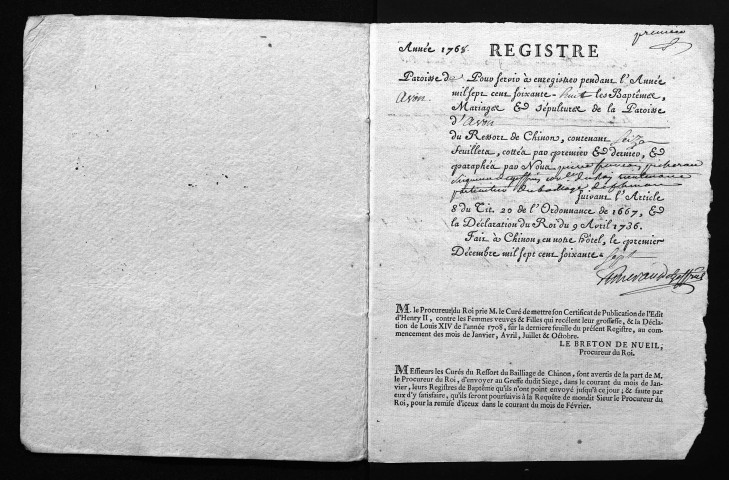 premier
Année 1768. REGISTRE
Paroisse d' Pour servir à enregistrer pendant l'Année
Avon mil sept cent soixante-huit les Baptêmes,
Mariages & Sépultures de la Paroisse
d'Avon
du Ressort de Chinon, contenant seize
feuillets, cottés par premier & dernier, &
paraphés par Nous
particulier du bailliage de Chinon
suivant l'Article
8 du Tit. 20 de l'Ordonnance de 1667, &
la Déclaration du Roi du 9 Avril 1736.
Fait à Chinon, en notre hôtel, le premier
Décembre mil sept cent soixante-sept
M. le Procureur du Roi prie M. le Curé de mettre son Certificat de Publication de l'Edit
d'Henry II, contre les Femmes veuves & Filles qui recélent leur grossesse, & la Décla-
ration de Louis XIV de l'année 1708, sur la derniere feuille du présent Registre, au com-
mencement des mois de Janvier, Avril, Juillet & Octobre.
LE BRETON DE NUEIL,
Procureur du Roi.
MEssieurs les Curés du Ressort du Bailliage de Chinon, sont avertis de la part de M.
le Procureur du Roi, d'envoyer au Greffe dudit Siege, dans le courant du mois de Jan-
vier, leurs Registres de Baptême qu'ils n'ont point envoyé jusqu'à ce jour; & faute par
eux d'y satisfaire, qu'ils seront poursuivis à la Requête de mondit Sieur le Procureur du
Roi, pour la remise d'iceux dans le courant du mois de Février.